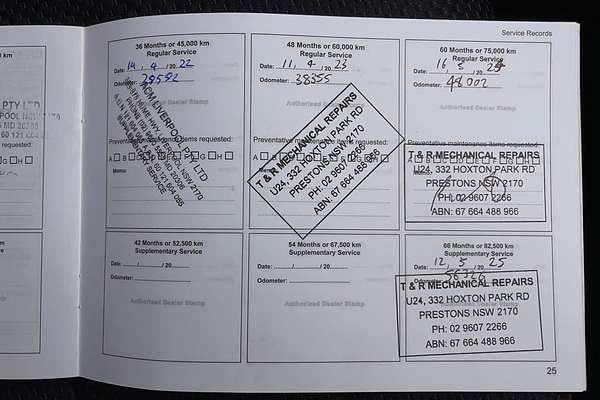 Service Records
36 Months or 45,000 km
Regular Service
Date: 14 , 4 / 20 22
Odometer:
LIVERPOOL PTY LTD
Preventative maintenance items requested:
Memo:
48 Months or 60,000 km
Regular Service
Date: 11 , 4 / 20 23
Odometer: 38355
Authorised Dealer Stamp
T & R MECHANICAL REPAIRS
U24, 332 HOXTON PARK RD
PRESTONS NSW 2170
PH: 02 9607 2266
ABN: 67 664 488 966
60 Months or 75,000 km
Regular Service
Date: 16 , 5 / 20 24
Odometer: 48002
Authorised Dealer Stamp
Preventative maintenance items requested:
T & R MECHANICAL REPAIRS
U24, 332 HOXTON PARK RD
PRESTONS NSW 2170
PH: 02 9607 2266
ABN: 67 664 488 966
42 Months or 52,500 km
Supplementary Service
Date: / / 20
Odometer:
Authorised Dealer Stamp
54 Months or 67,500 km
Supplementary Service
Date: / / 20
Odometer:
Authorised Dealer Stamp
66 Months or 82,500 km
Supplementary Service
Date: 12 , 5 / 20 25
T & R MECHANICAL REPAIRS
U24, 332 HOXTON PARK RD
PRESTONS NSW 2170
PH: 02 9607 2266
ABN: 67 664 488 966
25